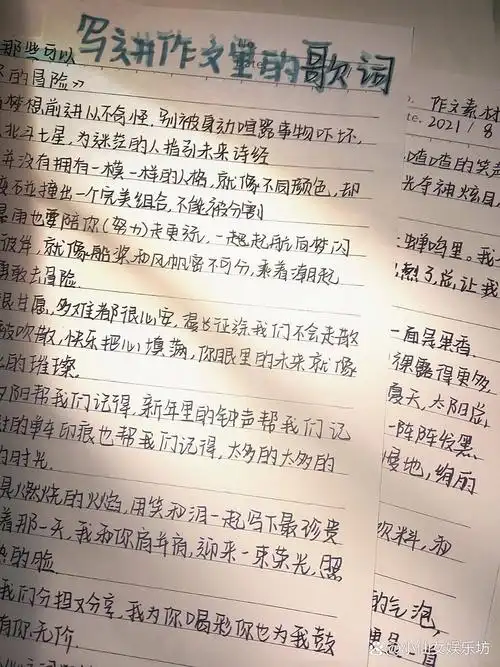 那些可以
写进作文里的歌词
的冒险》
梦想前进从不奇怪,别被身边喧嚣事物吓坏,
北斗七星,为迷茫的人指引未来诗经
并没有拥有一模一样的人格,就像不同颜色,却
碰撞出一个完美组合,不能被分割
暴雨也要陪你(努力)走更远,一起起航向梦闪
伙伴,就像船桨和风帆密不可分,乘着潮起
勇敢去冒险
很甘愿,多难都很心安,漫长征途我们不会走散
被吹散,快乐把心填满,你眼里的未来就像
的璀璨
夕阳帮我们记得,新年里的钟声帮我们记
的单车印痕也帮我们记得,太多的太多的
时光
是燃烧的火焰,用笑和泪一起写下最珍贵
着那一天,我和你肩并肩,迎来一束荣光,照
热的脸
我们分担又分享,我为你喝彩你也为我鼓
有你无价
作文素材
2021/8
喳喳的笑声
光夺神炫目
蝉鸣里。我
,让我
一面是果香
裸露得更多
夏天,太阳总
一阵阵发黑
慢地,绚丽
饮料,和
的气泡,
小仙女娱乐坊